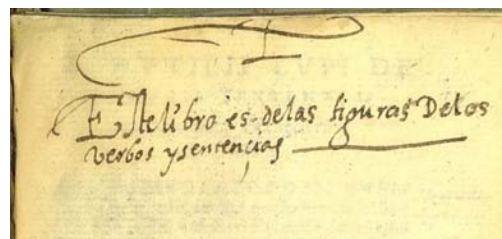 Este libro es delas figuras Delos
verbos y sentençias